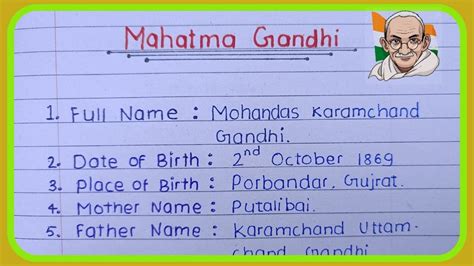 Mahatma Gandhi
1. Full Name : Mohandas Karamchand
Gandhi.
2. Date of Birth : 2nd October 1869
3. Place of Birth : Porbandar, Gujrat.
4. Mother Name : Putalibai.
5. Father Name : Karamchand Uttam-
chand Gandhi